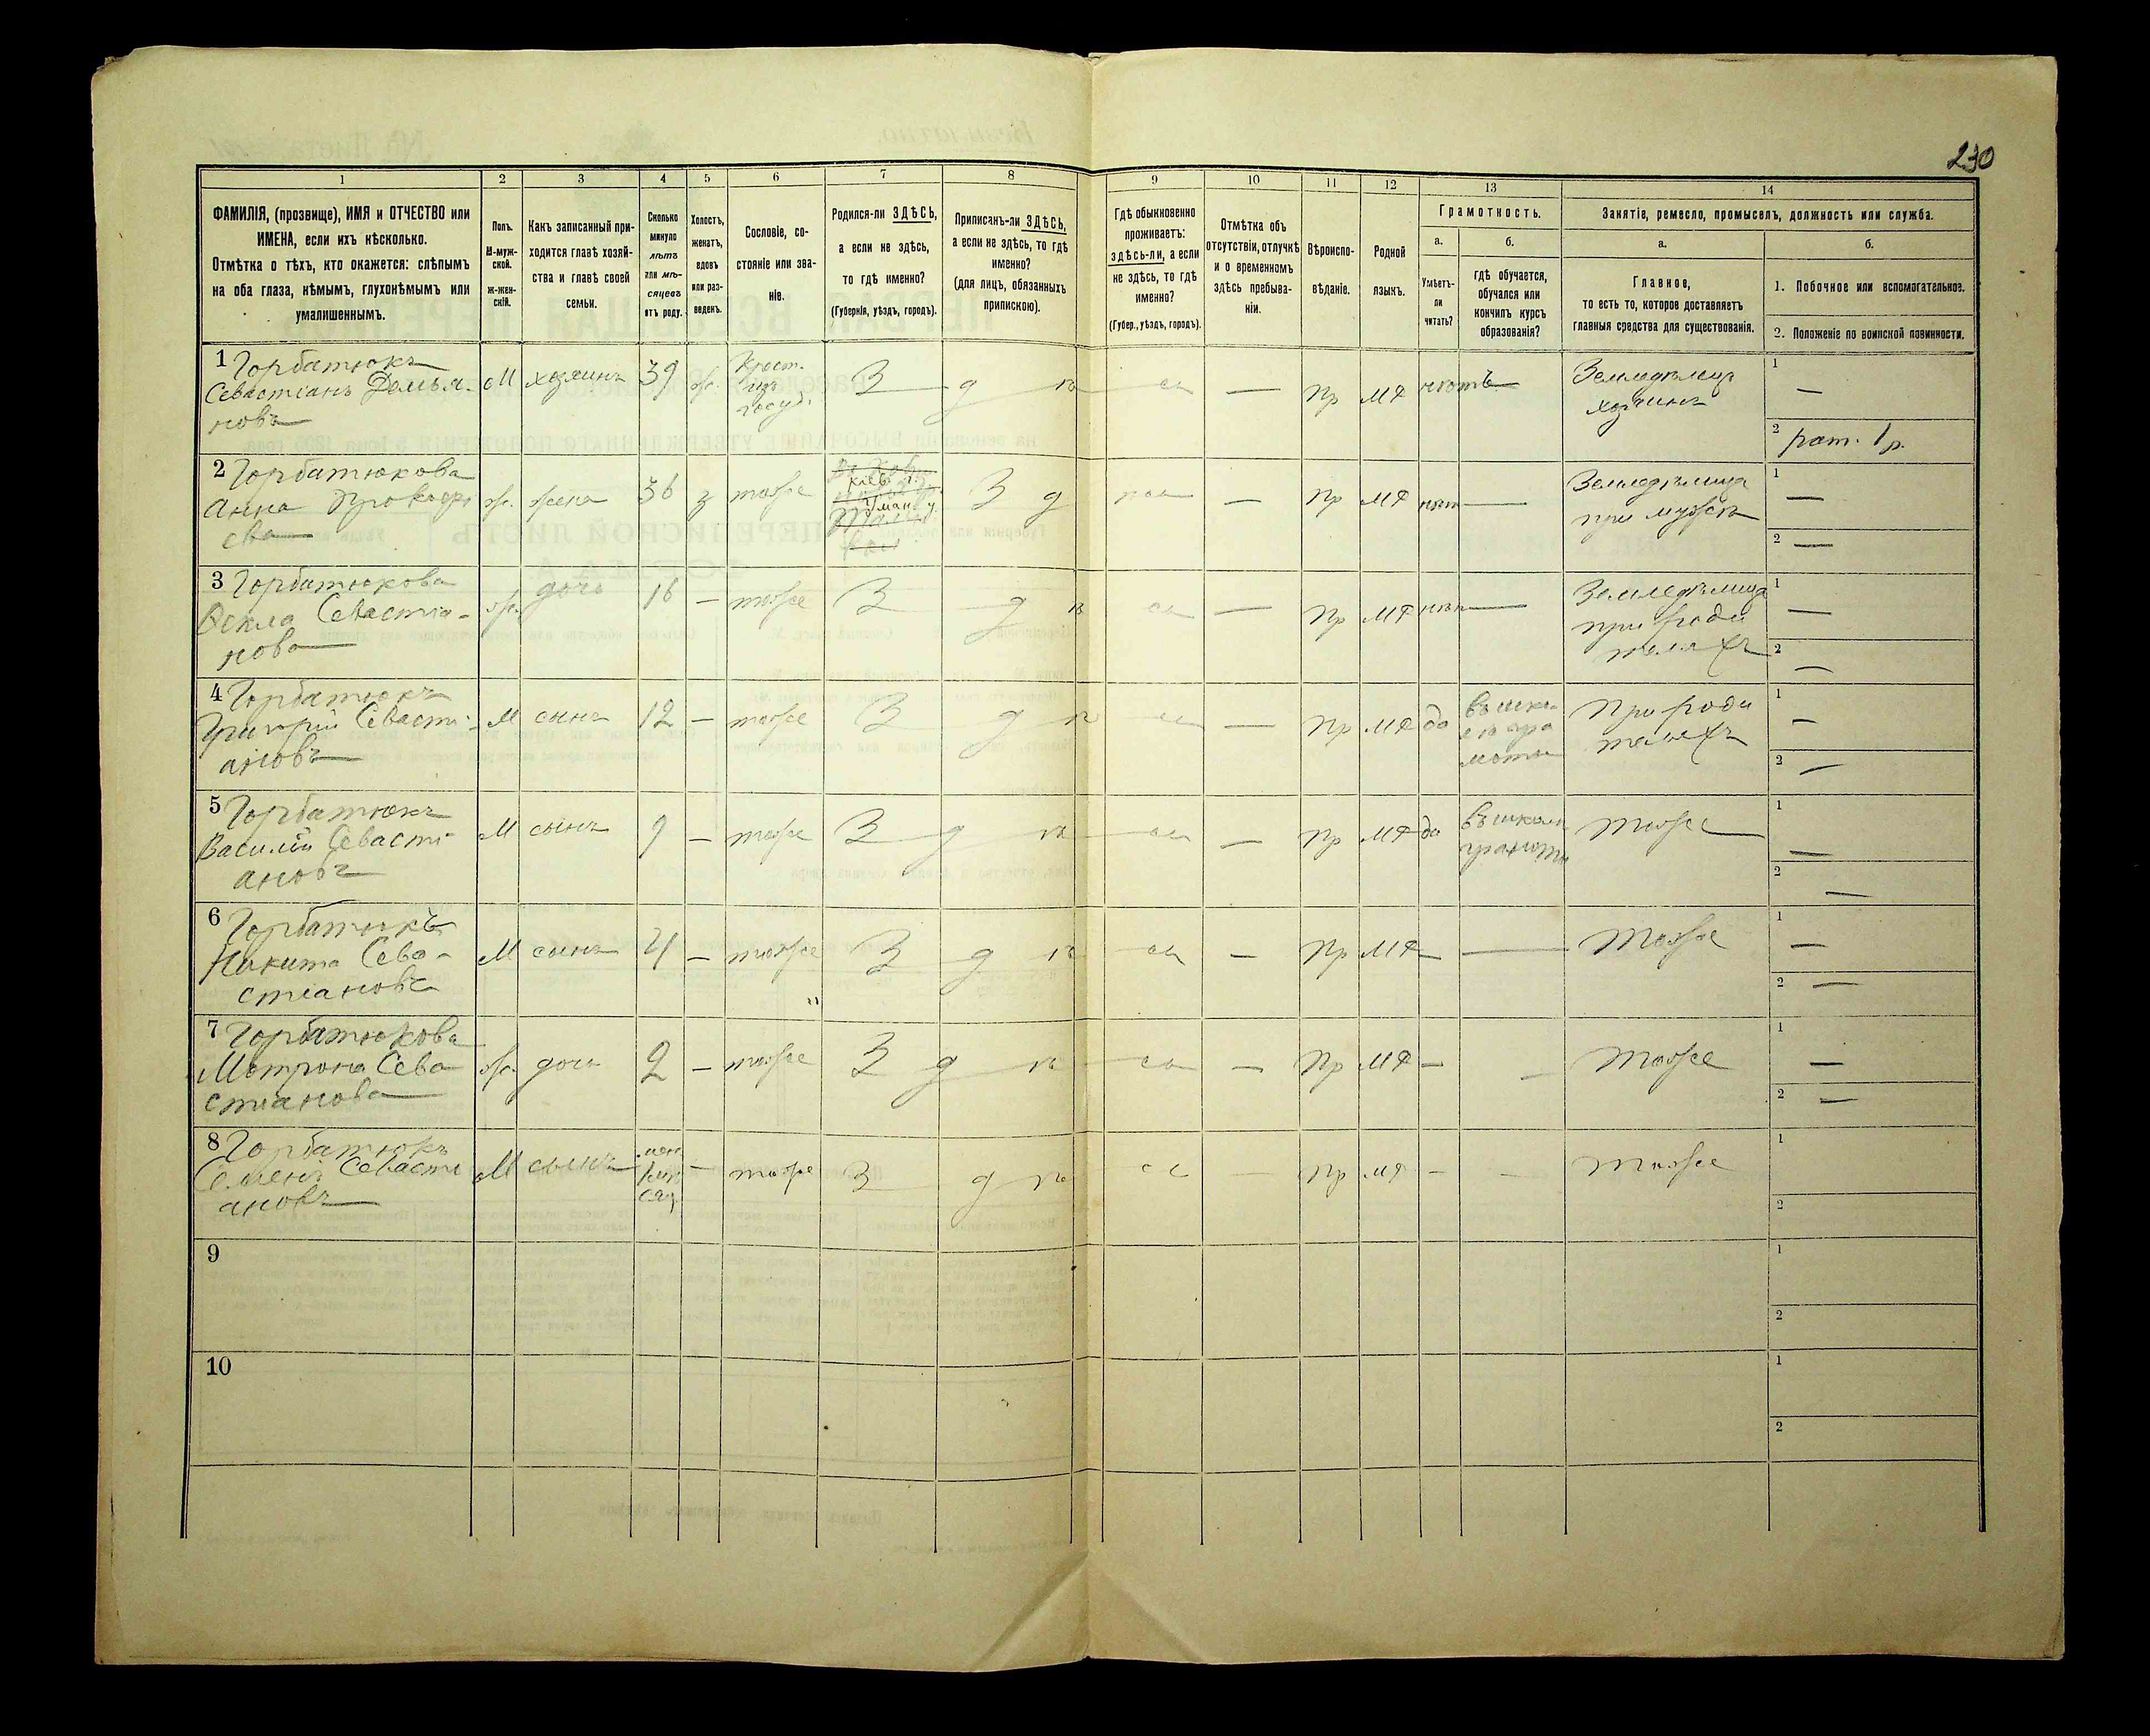 230
1 2 3 4 5 6 7 8 9 10 11 12 13 14
ФАМИЛІЯ, (прозвище), ИМЯ и ОТЧЕСТВО или
ИМЕНА, если ихъ нѣсколько.
Отмѣтка о тѣхъ, кто окажется: слѣпымъ
на оба глаза, нѣмымъ, глухонѣмымъ или
умалишеннымъ.
Полъ.
М-муж-
ской.
Ж-жен-
скій.
Какъ записанный при-
ходится главѣ хозяй-
ства и главѣ своей
семьи.
Сколько
минуло
лѣтъ
или мѣ-
сяцевъ
отъ роду.
Холостъ,
женатъ,
вдовъ
или раз-
веденъ.
Сословіе, со-
стояніе или зва-
ніе.
Родился-ли ЗДѢСЬ,
а если не здѣсь,
то гдѣ именно?
(Губернія, уѣздъ, городъ).
Приписанъ-ли ЗДѢСЬ,
а если не здѣсь, то гдѣ
именно?
(для лицъ, обязанныхъ
припискою).
Гдѣ обыкновенно
проживаетъ:
здѣсь-ли, а если
не здѣсь, то гдѣ
именно?
(Губер., уѣздъ, городъ).
Отмѣтка объ
отсутствіи, отлучкѣ
и о временномъ
здѣсь пребыва-
ніи.
Вѣроиспо-
вѣданіе.
Родной
языкъ.
Грамотность.
а.
Умѣетъ-
ли
читать?
б.
гдѣ обучается,
обучался или
кончилъ курсъ
образованія?
Занятіе, ремесло, промыселъ, должность или служба.
а.
Главное,
то есть то, которое доставляетъ
главныя средства для существованія.
б.
1. Побочное или вспомогательное.
2. Положеніе по воинской повинности.
1 Горбатюкъ
Севастіанъ Демья-
новъ
М хозяинъ 39 ж.
Крест.
изъ
госуд.
З д п
—
Пр МЯ нѣтъ
Земледѣлецъ
хозяинъ
1 —
2 рат. 1 р.
2 Горбатюкова
Анна
ева
ж. жена 36 з тоже
Кіев. г.
Уман. у.
З д
—
Пр МЯ нѣтъ
Земледѣлица
при мужѣ
1 —
2 —
3 Горбатюкова
Ѳекла Севастіа-
нова
ж. дочь 16 — тоже З д п
—
Пр МЯ нѣтъ
Земледѣлица
при роди
теляхъ
1 —
2 —
4 Горбатюкъ
Григорій Севасти-
ановъ
М сынъ 12 — тоже З д п
—
Пр МЯ да
въ шко-
лѣ гра
моты
При роди
теляхъ
1 —
2 —
5 Горбатюкъ
Василій Севасті-
ановъ
М сынъ 9 — тоже З д п
—
Пр МЯ да
въ школѣ
грамоты
тоже
1 —
2 —
6 Горбатюкъ
Никита Сева-
стіановъ
М сынъ 4 — тоже З д п
—
Пр МЯ — —
тоже
1 —
2 —
7 Горбатюкова
Матрона Сева
стіанова
ж. дочь 2 — тоже З д п
—
Пр МЯ — —
тоже
1 —
2 —
8 Горбатюкъ
Семенъ Севасти
ановъ
М сынъ
— тоже З д п
—
Пр МЯ — —
тоже
1
2
9
1
2
10
1
2